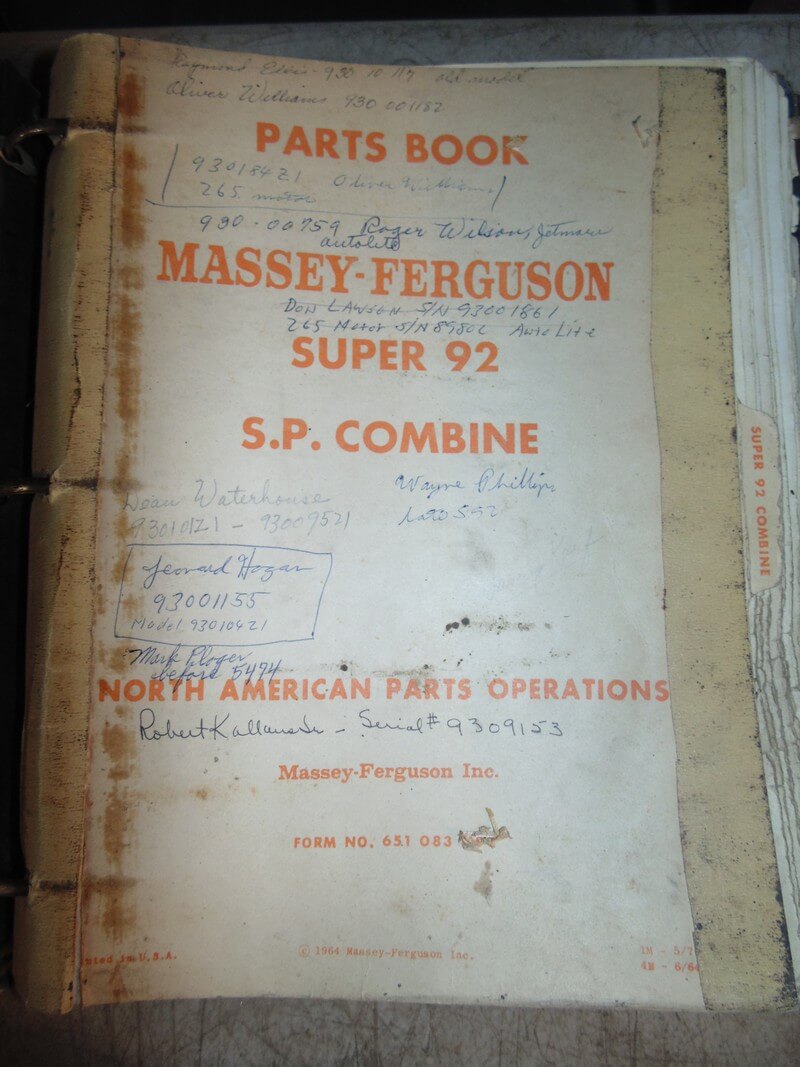 Raymond Elvis - 930 10 117 old model
Oliver Williams 930 001182
PARTS BOOK
930184Z1 Oliver Williams
265 motor
930-00759 Roger Wilson, Jetmore
autolite
MASSEY-FERGUSON
Don Lawson S/N 93001861
265 Motor S/N 89802 Auto Lite
SUPER 92
S.P. COMBINE
Dean Waterhouse
93010121 - 93009521
Wayne Phillips
Leonard Hogan
93001155
Model 93010421
Mark Ploger
before 5474
NORTH AMERICAN PARTS OPERATIONS
Robert Kallaus Jr - Serial # 9309153
Massey-Ferguson Inc.
FORM NO. 651 083
in U.S.A.
© 1964 Massey-Ferguson Inc.
1M - 5/7
4M - 6/64
SUPER 92 COMBINE